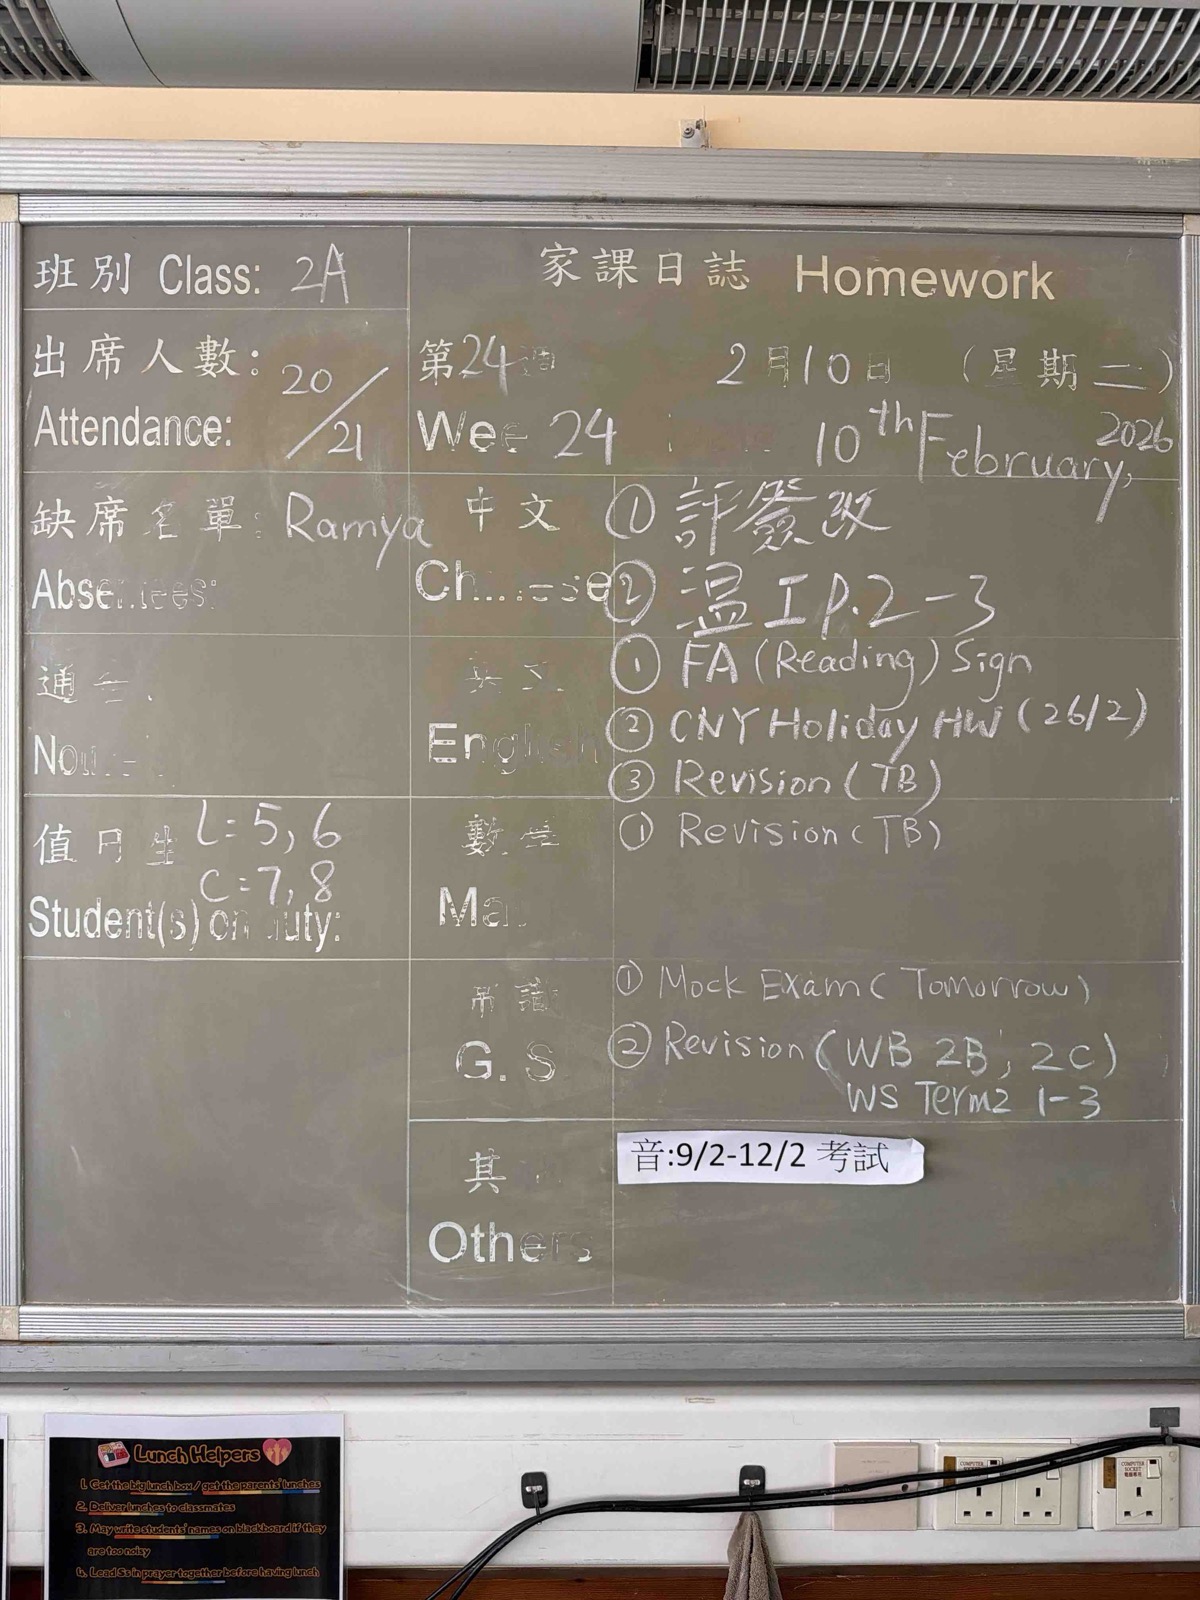 班別 Class: 2A
家課日誌 Homework
出席人數: 20/21
Attendance:
第24週 2月10日 (星期二)
Wee 24 10th February, 2026
缺席名單: Ramya
Absentees:
中文
Chinese
① 評簽改
② 温工P.2-3
通告
英文
English
① FA (Reading) Sign
② CNY Holiday HW (26/2)
③ Revision (TB)
值日生 L=5,6
C=7,8
Student(s) on duty:
數學
Ma
① Revision (TB)
常識
G.S
① Mock Exam (Tomorrow)
② Revision (WB 2B, 2C)
WS Term2 1-3
其
Others
音:9/2-12/2 考試
Lunch Helpers
1. Get the big lunch box / get the parents' lunches
2. Deliver lunches to classmates
3. May write students' names on blackboard if they
are too noisy
4. Lead Ss in prayer together before having lunch
COMPUTER SOCKET
COMPUTER SOCKET